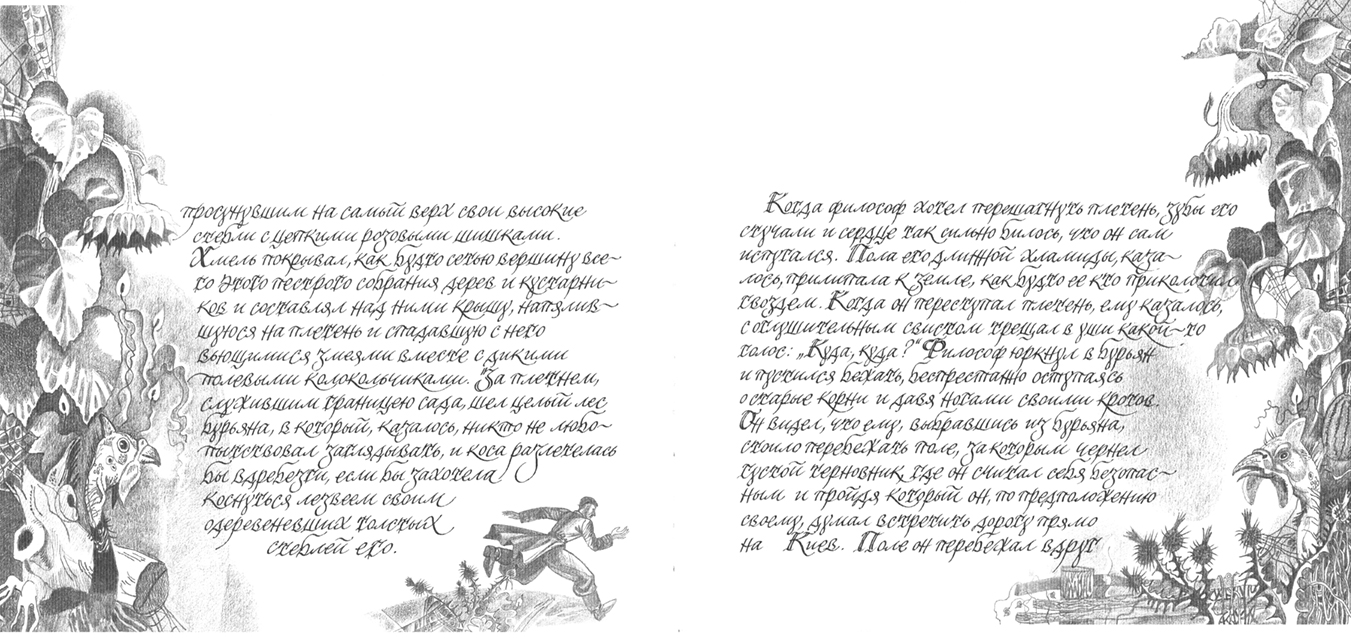 просунувшим на самый верх свои высокие
стебли с цепкими розовыми шишками.
Хмель покрывал, как будто сетью вершину все-
го этого пестрого собрания дерев и кустарни-
ков и составлял над ними крышу, напялив-
шуюся на плетень и спадавшую с него
вьющимися змеями вместе с дикими
полевыми колокольчиками. За плетнем,
служившим границею сада, шел целый лес
бурьяна, в который, казалось, никто не любо-
пытствовал заглядывать, и коса разлетелась
бы вдребезги, если бы захотела
коснуться лезвеем своим
одеревеневших толстых
стеблей его.
Когда философ хотел перешагнуть плетень, зубы его
стучали и сердце так сильно билось, что он сам
испугался. Пола его длинной хламиды, каза-
лось, прилипала к земле, как будто ее кто приколотил
гвоздем. Когда он переступал плетень, ему казалось,
с оглушительным свистом трещал в уши какой-то
голос: „Куда, куда?“ Философ юркнул в бурьян
и пустился бежать, беспрестанно оступаясь
о старые корни и давя ногами своими кротов.
Он видел, что ему, выбравшись из бурьяна,
стоило перебежать поле, за которым чернел
густой терновник, где он считал себя безопас-
ным и пройдя который он, по предположению
своему, думал встретить дорогу прямо
на Киев. Поле он перебежал вдруг